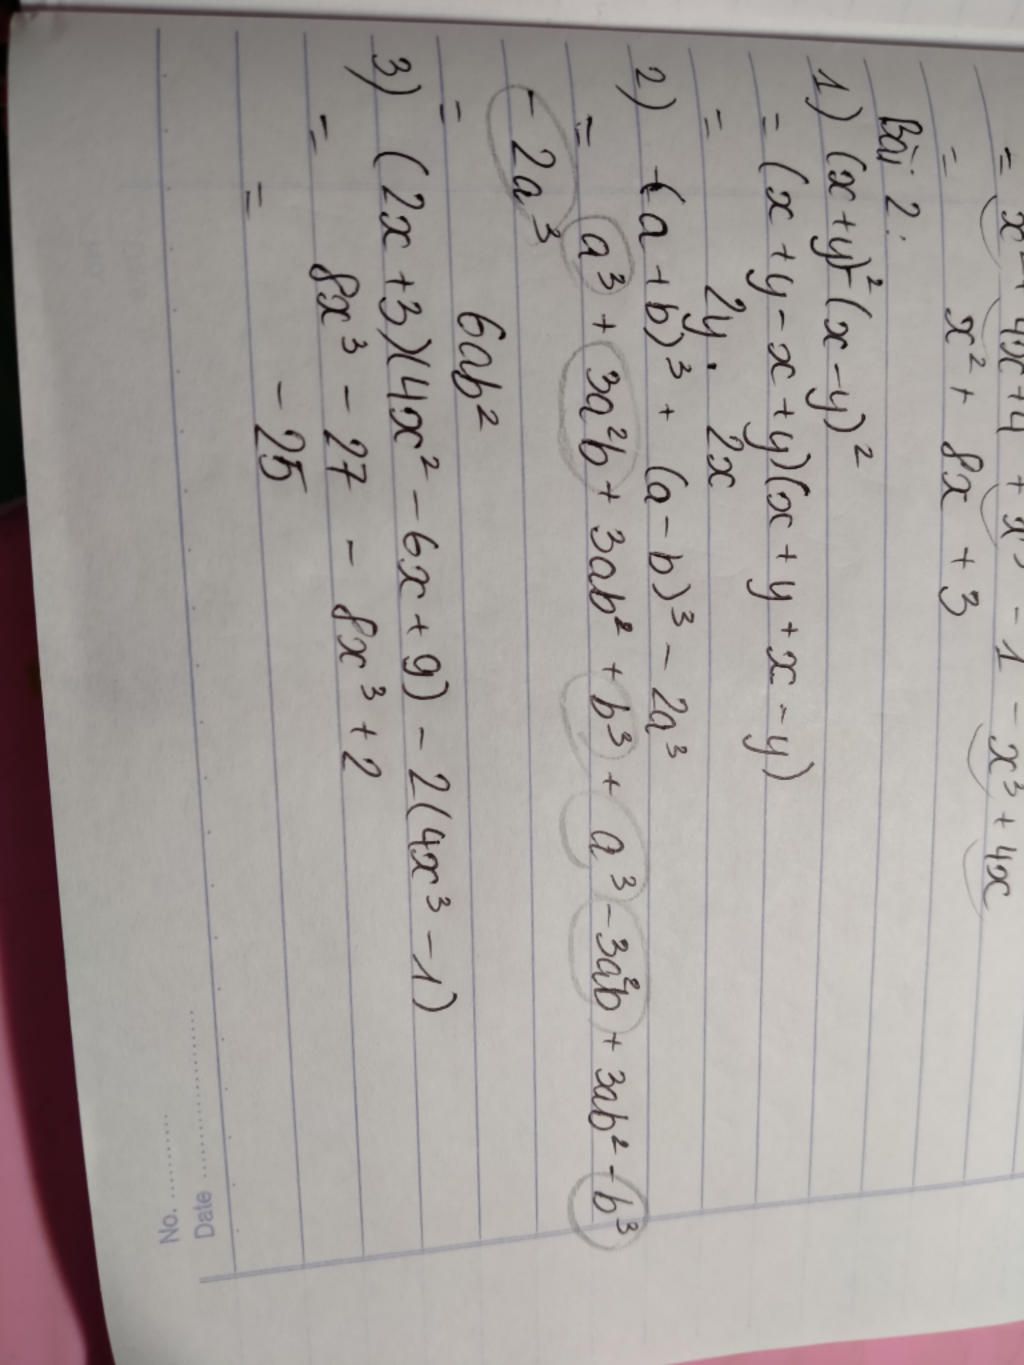 = x² + 4x + 4 + x³ - 1 - x³ + 4x
= x² + 8x + 3
Bài 2:
1) (x + y)² - (x - y)²
= (x + y - x + y)(x + y + x - y)
= 2y . 2x
2) (a + b)³ + (a - b)³ - 2a³
= a³ + 3a²b + 3ab² + b³ + a³ - 3a²b + 3ab² - b³
- 2a³
= 6ab²
3) (2x + 3)(4x² - 6x + 9) - 2(4x³ - 1)
= 8x³ - 27 - 8x³ + 2
= - 25
No. ............
Date ............